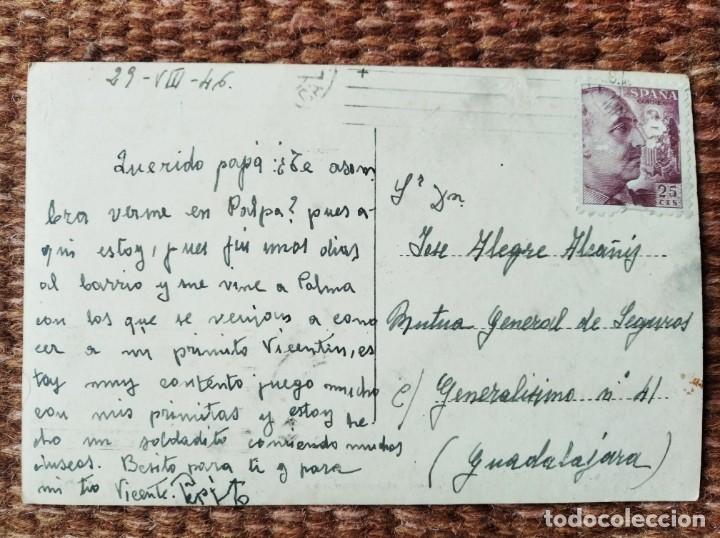 29-VIII-46.
Querido papá ¿Te asom
bra verme en Palpa? pues a-
qui estoy, pues fui unos dias
al barrio y me vine a Palma
con los que se venian a cono
cer a mi primito Vicentin, es
toy muy contento juego mucho
con mis primitas y estoy he
cho un soldadito comiendo muchos
Besito para ti y para
mi tio Vicente. Pepito
Sr Dn.
Jose Alegre Alcañiz
Mutua General de Seguros
c/ Generalisimo nº 41
(Guadalajara)
ESPAÑA
CORREOS
25
CTS
todocoleccion.net